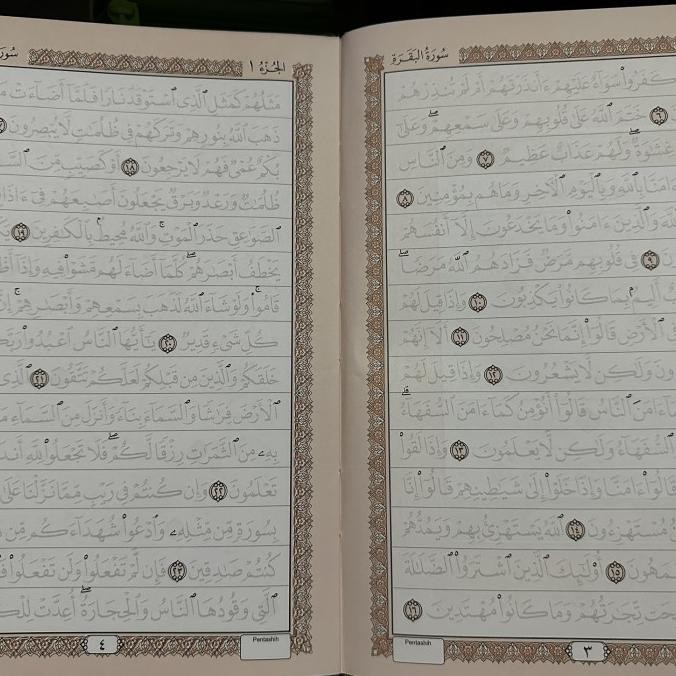 سُورَةُ البَقَرَةِ
كَفَرُوا۟ سَوَآءٌ عَلَيْهِمْ ءَأَنذَرْتَهُمْ أَمْ لَمْ تُنذِرْهُمْ
٦ خَتَمَ ٱللَّهُ عَلَىٰ قُلُوبِهِمْ وَعَلَىٰ سَمْعِهِمْ ۖ وَعَلَىٰٓ
غِشَـٰوَةٌ ۖ وَلَهُمْ عَذَابٌ عَظِيمٌ ٧ وَمِنَ ٱلنَّاسِ
ءَامَنَّا بِٱللَّهِ وَبِٱلْيَوْمِ ٱلْـَٔاخِرِ وَمَا هُم بِمُؤْمِنِينَ ٨
وَٱلَّذِينَ ءَامَنُوا۟ وَمَا يَخْدَعُونَ إِلَّآ أَنفُسَهُمْ
٩ فِى قُلُوبِهِم مَّرَضٌ فَزَادَهُمُ ٱللَّهُ مَرَضًا ۖ
أَلِيمٌۢ بِمَا كَانُوا۟ يَكْذِبُونَ ١٠ وَإِذَا قِيلَ لَهُمْ
فِى ٱلْأَرْضِ قَالُوٓا۟ إِنَّمَا نَحْنُ مُصْلِحُونَ ١١ أَلَآ إِنَّهُمْ
وَلَـٰكِن لَّا يَشْعُرُونَ ١٢ وَإِذَا قِيلَ لَهُمْ
ءَامَنَ ٱلنَّاسُ قَالُوٓا۟ أَنُؤْمِنُ كَمَآ ءَامَنَ ٱلسُّفَهَآءُ ۗ
ٱلسُّفَهَآءُ وَلَـٰكِن لَّا يَعْلَمُونَ ١٣ وَإِذَا لَقُوا۟
قَالُوٓا۟ ءَامَنَّا وَإِذَا خَلَوْا۟ إِلَىٰ شَيَـٰطِينِهِمْ قَالُوٓا۟ إِنَّا
مُسْتَهْزِءُونَ ١٤ ٱللَّهُ يَسْتَهْزِئُ بِهِمْ وَيَمُدُّهُمْ
يَعْمَهُونَ ١٥ أُو۟لَـٰٓئِكَ ٱلَّذِينَ ٱشْتَرَوُا۟ ٱلضَّلَـٰلَةَ
تِّجَـٰرَتُهُمْ وَمَا كَانُوا۟ مُهْتَدِينَ ١٦
Pentashih
٣
الجُزْءُ ١
مَثَلُهُمْ كَمَثَلِ ٱلَّذِى ٱسْتَوْقَدَ نَارًا فَلَمَّآ أَضَآءَتْ
ذَهَبَ ٱللَّهُ بِنُورِهِمْ وَتَرَكَهُمْ فِى ظُلُمَـٰتٍ لَّا يُبْصِرُونَ
بُكْمٌ عُمْىٌ فَهُمْ لَا يَرْجِعُونَ ١٨ أَوْ كَصَيِّبٍ مِّنَ
ظُلُمَـٰتٌ وَرَعْدٌ وَبَرْقٌ يَجْعَلُونَ أَصَـٰبِعَهُمْ فِىٓ ءَاذَانِهِم
ٱلصَّوَٰعِقِ حَذَرَ ٱلْمَوْتِ ۚ وَٱللَّهُ مُحِيطٌۢ بِٱلْكَـٰفِرِينَ ١٩
يَخْطَفُ أَبْصَـٰرَهُمْ ۖ كُلَّمَآ أَضَآءَ لَهُم مَّشَوْا۟ فِيهِ وَإِذَآ
قَامُوا۟ ۚ وَلَوْ شَآءَ ٱللَّهُ لَذَهَبَ بِسَمْعِهِمْ وَأَبْصَـٰرِهِمْ ۚ
كُلِّ شَىْءٍ قَدِيرٌ ٢٠ يَـٰٓأَيُّهَا ٱلنَّاسُ ٱعْبُدُوا۟
خَلَقَكُمْ وَٱلَّذِينَ مِن قَبْلِكُمْ لَعَلَّكُمْ تَتَّقُونَ ٢١ ٱلَّذِى
ٱلْأَرْضَ فِرَٰشًا وَٱلسَّمَآءَ بِنَآءً وَأَنزَلَ مِنَ ٱلسَّمَآءِ
بِهِۦ مِنَ ٱلثَّمَرَٰتِ رِزْقًا لَّكُمْ ۖ فَلَا تَجْعَلُوا۟ لِلَّهِ
تَعْلَمُونَ ٢٢ وَإِن كُنتُمْ فِى رَيْبٍ مِّمَّا نَزَّلْنَا عَلَىٰ
بِسُورَةٍ مِّن مِّثْلِهِۦ وَٱدْعُوا۟ شُهَدَآءَكُم مِّن
كُنتُمْ صَـٰدِقِينَ ٢٣ فَإِن لَّمْ تَفْعَلُوا۟ وَلَن تَفْعَلُوا۟
ٱلَّتِى وَقُودُهَا ٱلنَّاسُ وَٱلْحِجَارَةُ ۖ أُعِدَّتْ
Pentashih
٤